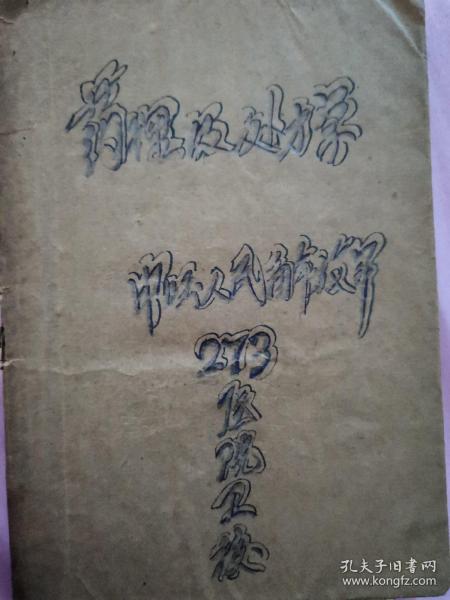 药理及处方学
中国人民解放军
273
医
院
卫
校
孔夫子旧书网
www.kongfz.com